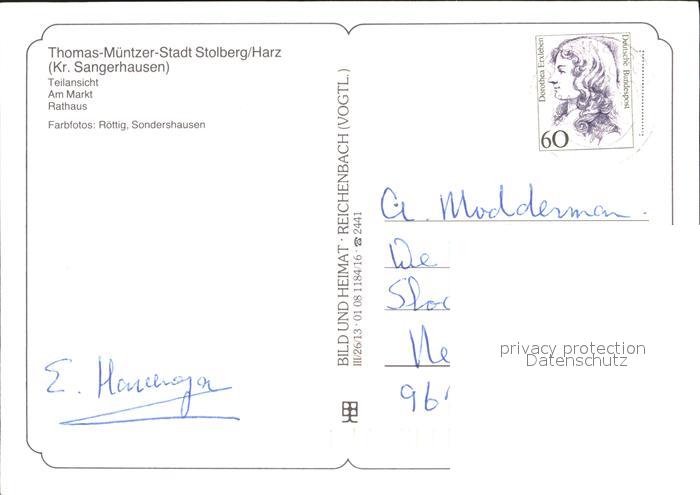 Thomas-Müntzer-Stadt Stolberg/Harz
(Kr. Sangerhausen)
Teilansicht
Am Markt
Rathaus
Farbfotos: Röttig, Sondershausen
BILD UND HEIMAT · REICHENBACH (VOGTL.)
III/26/13 · 01 08 1184/16 · ☎ 2441
Dorothea Erxleben
Deutsche Bundespost
60
Modderman.
We
privacy protection
Datenschutz
E.